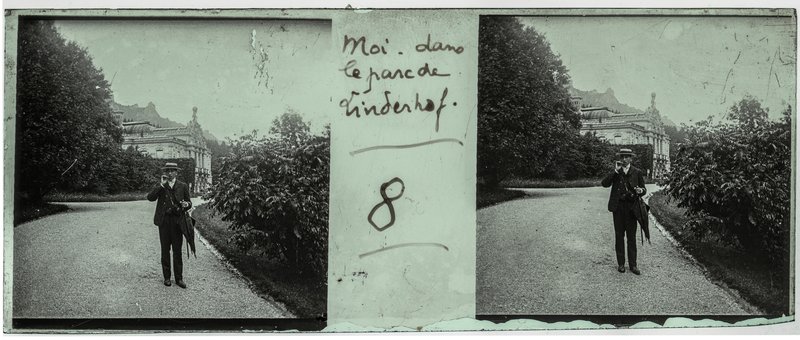 Moi - dans
le parc de
Linderhof.
8